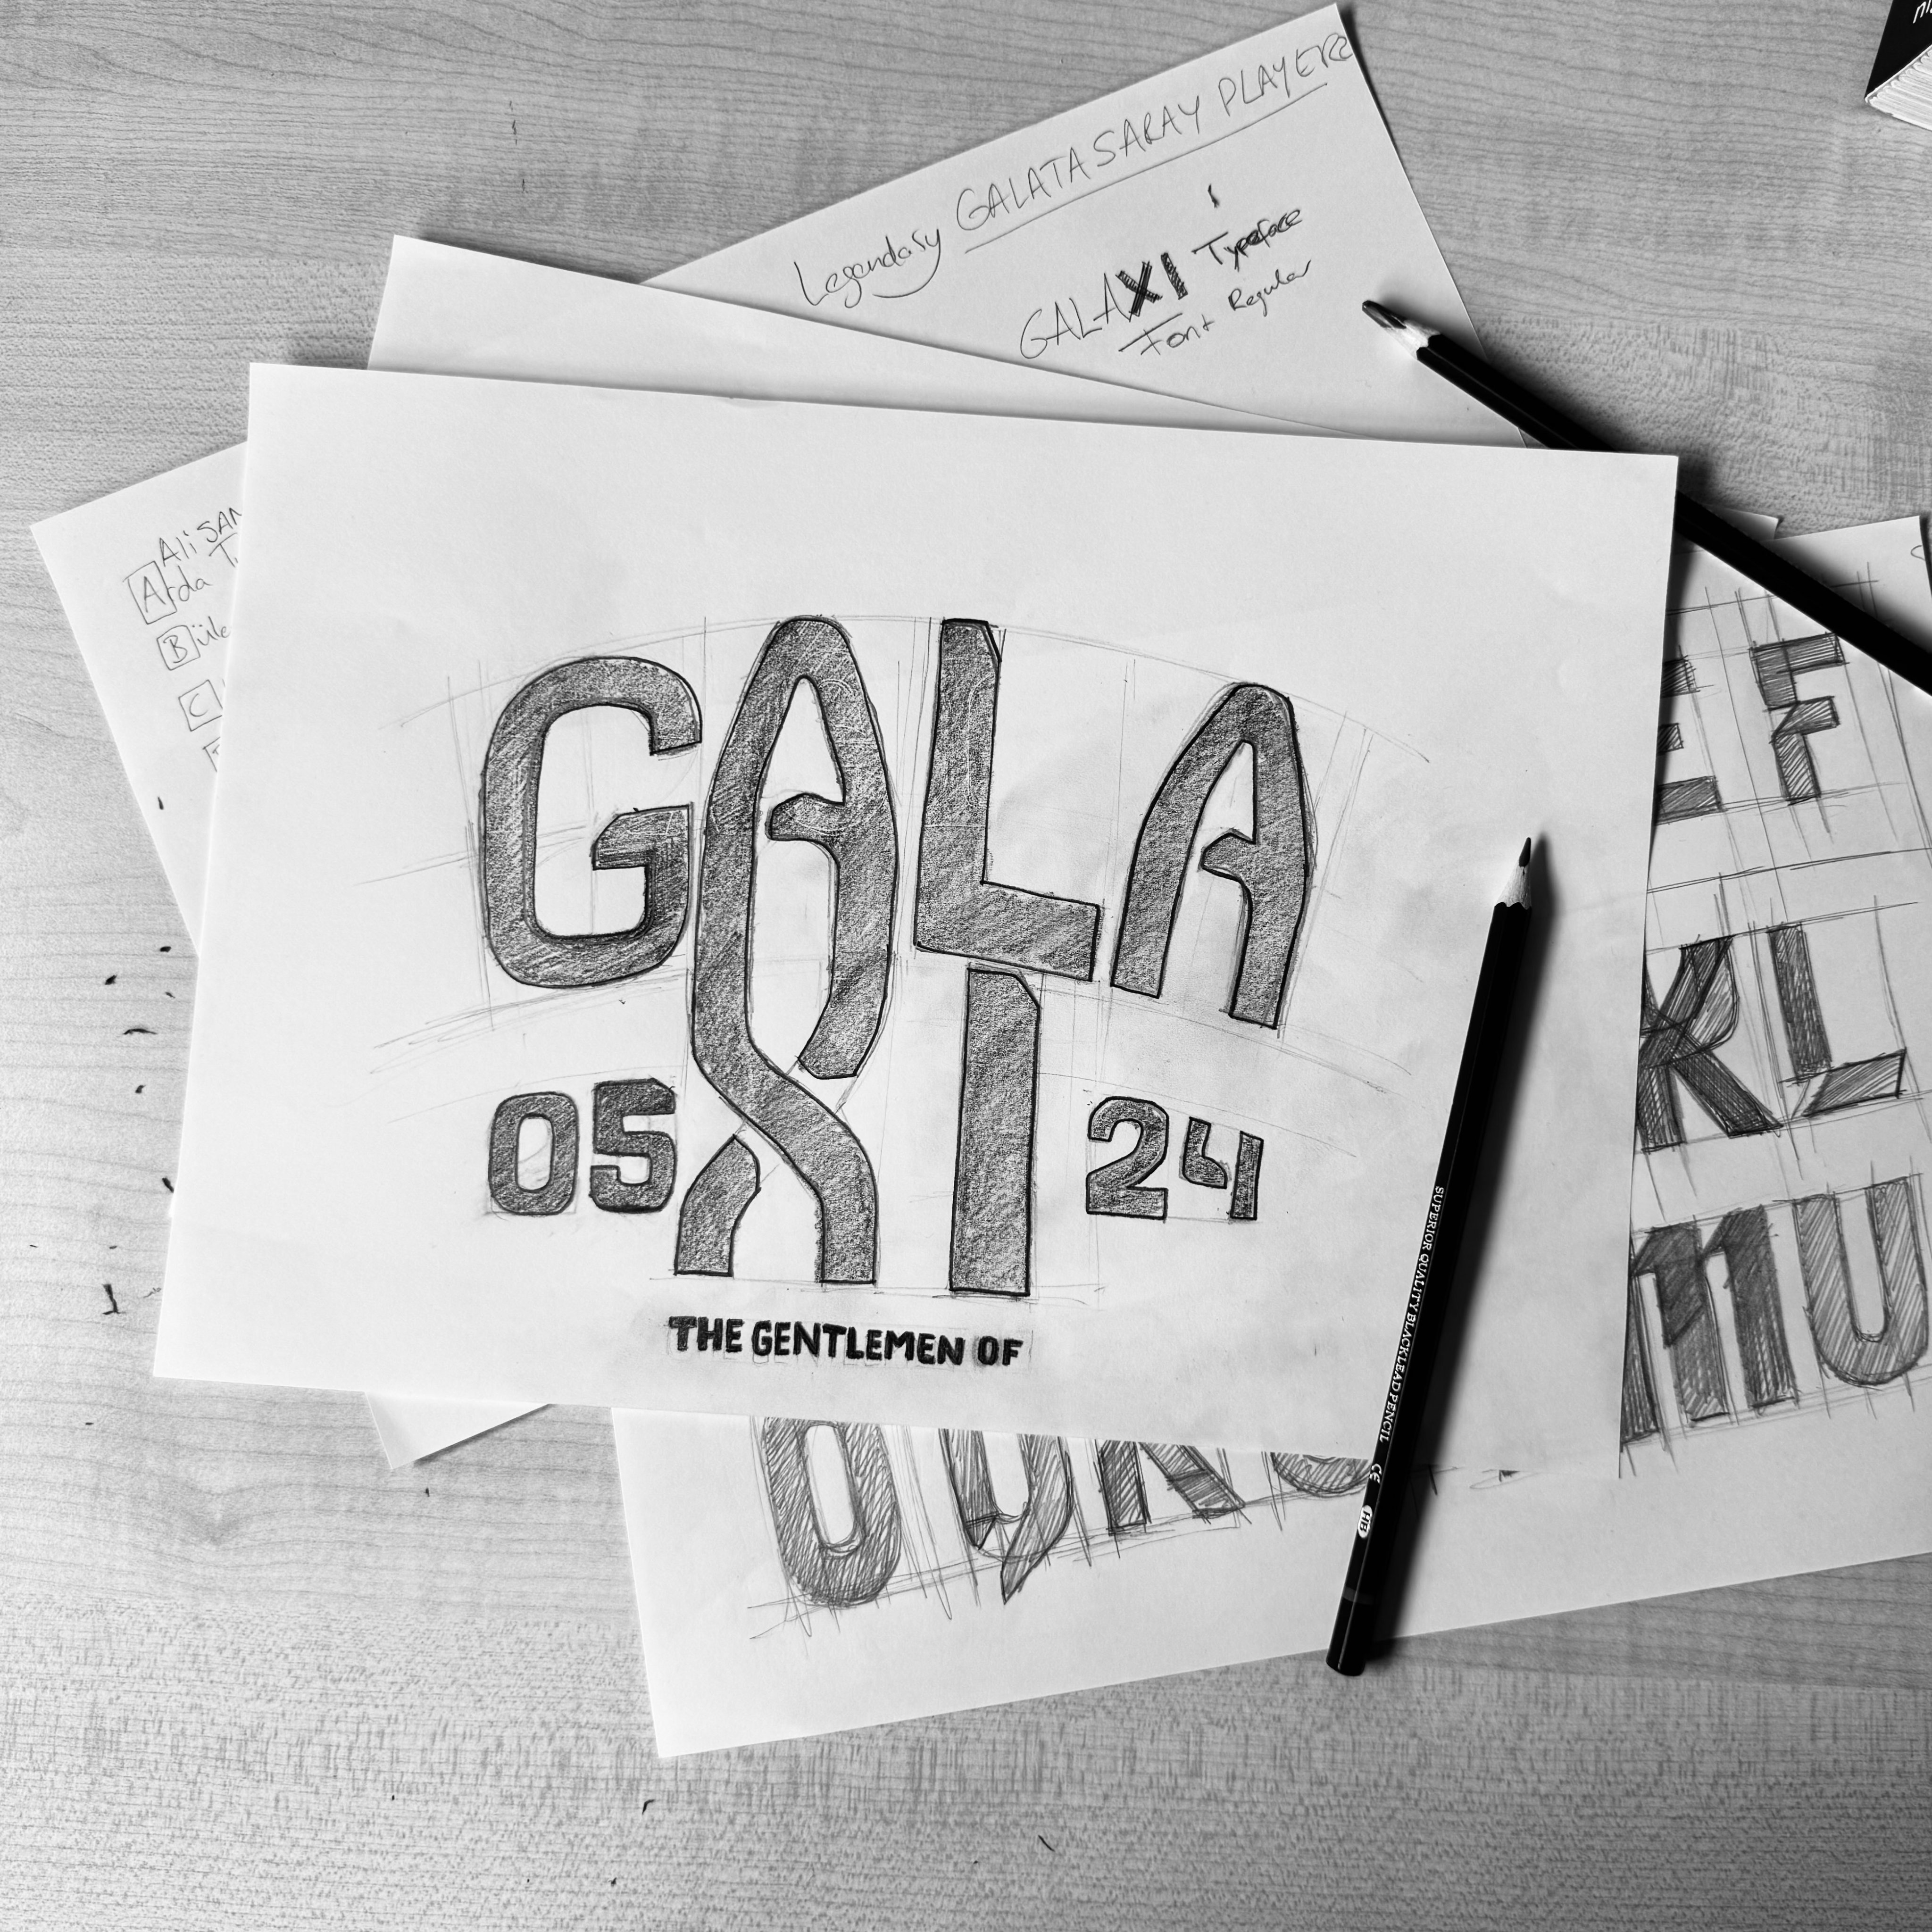 Legendary GALATASARAY PLAYERS
GALAXI Typeface
Font Regular
Ali SAN
Arda T
Büle
C
GALA
XI
05 24
THE GENTLEMEN OF
EF
KL
MU
OQRS
SUPERIOR QUALITY BLACKLEAD PENCIL CE HB